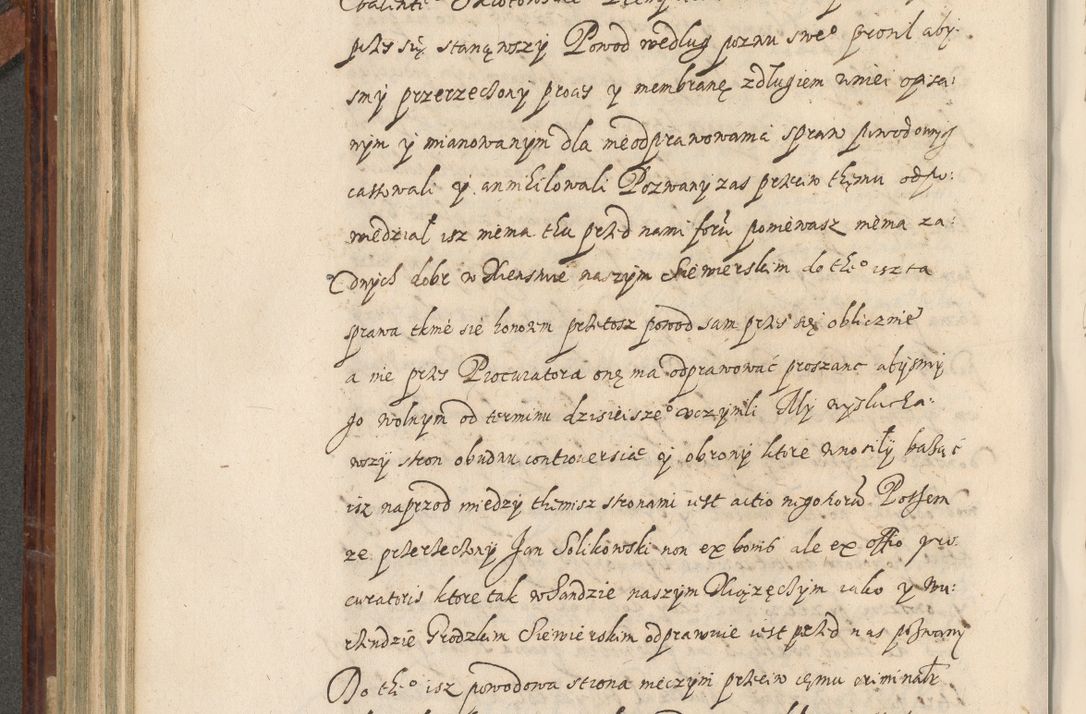 przs się stanąwszy Powod według poznu swe° prosił aby
smy przerzeczony proces y membranę zdługiem wniei opisa:
nym y mianowanym dla nieodprawowania spraw powodowych
cassowali y annihilowali Pozwany zas przeciw themu odpo:
wiedział isz niema thu przed nami forū poniewasz niema za:
dnych dobr w Xienstwie naszym Siewierskim do the° isz ta
sprawa tknie się honoru przetosz powod sam przes się oblicznie
a nie przes Procuratora onę ma odprawować proszanc abysmy
go wolnym od terminu dzisieisze° uczynili My wysłucha:
wszy stron obudwu controversie y obrony ktore wnosiły bacząc
isz naprzod miedzy themisz stronami iest actio Pothem
ze przerzeczony Jan Solikowski non ex bonis ale ex offio pro:
curatoris ktore tak w Sandzie naszym Xiązęczym iako y w u:
rzendzie Grodzkim Siewierskim odprawuie iest przed nas poszwany
Do the° isz powodowa strona nieczym przeciw czemu criminałr